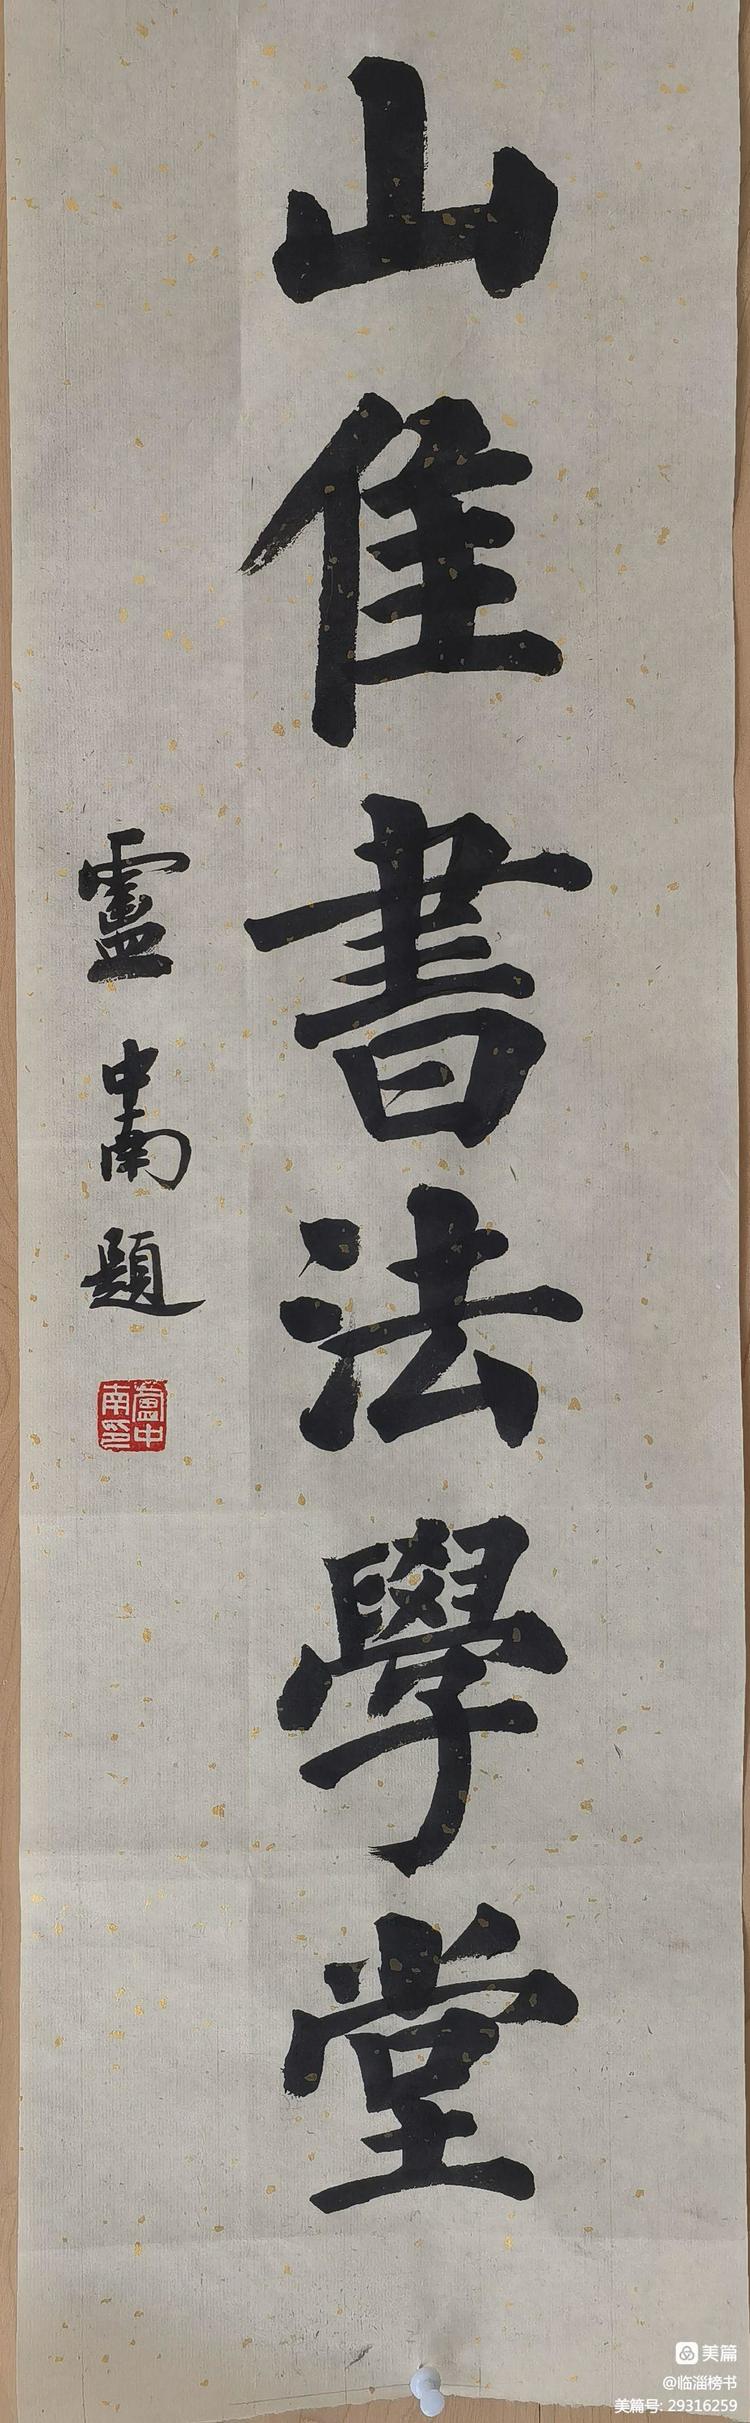 山隹書法學堂
盧中南題
盧中南印
美篇
@临淄榜书
美篇号: 29316259